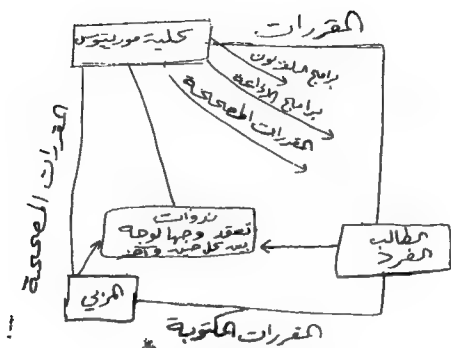 المقررات
كلية موريتوس
برامج التلفزيون
برامج الإذاعة
المقررات المصححة
المقررات المصححة
ندوات
تعقد وجها لوجه
بين كل حين وآخر
الطالب
الفرد
المربي
المقررات المكتوبة